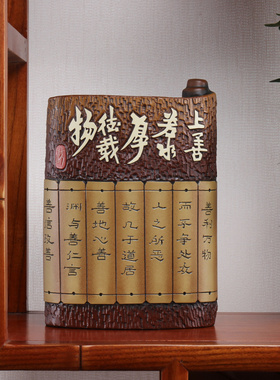 上善
若水
厚
德载
物
善利万物
而不争处众
人之所恶
故几于道居
善地心善
渊与善仁言
善信政善